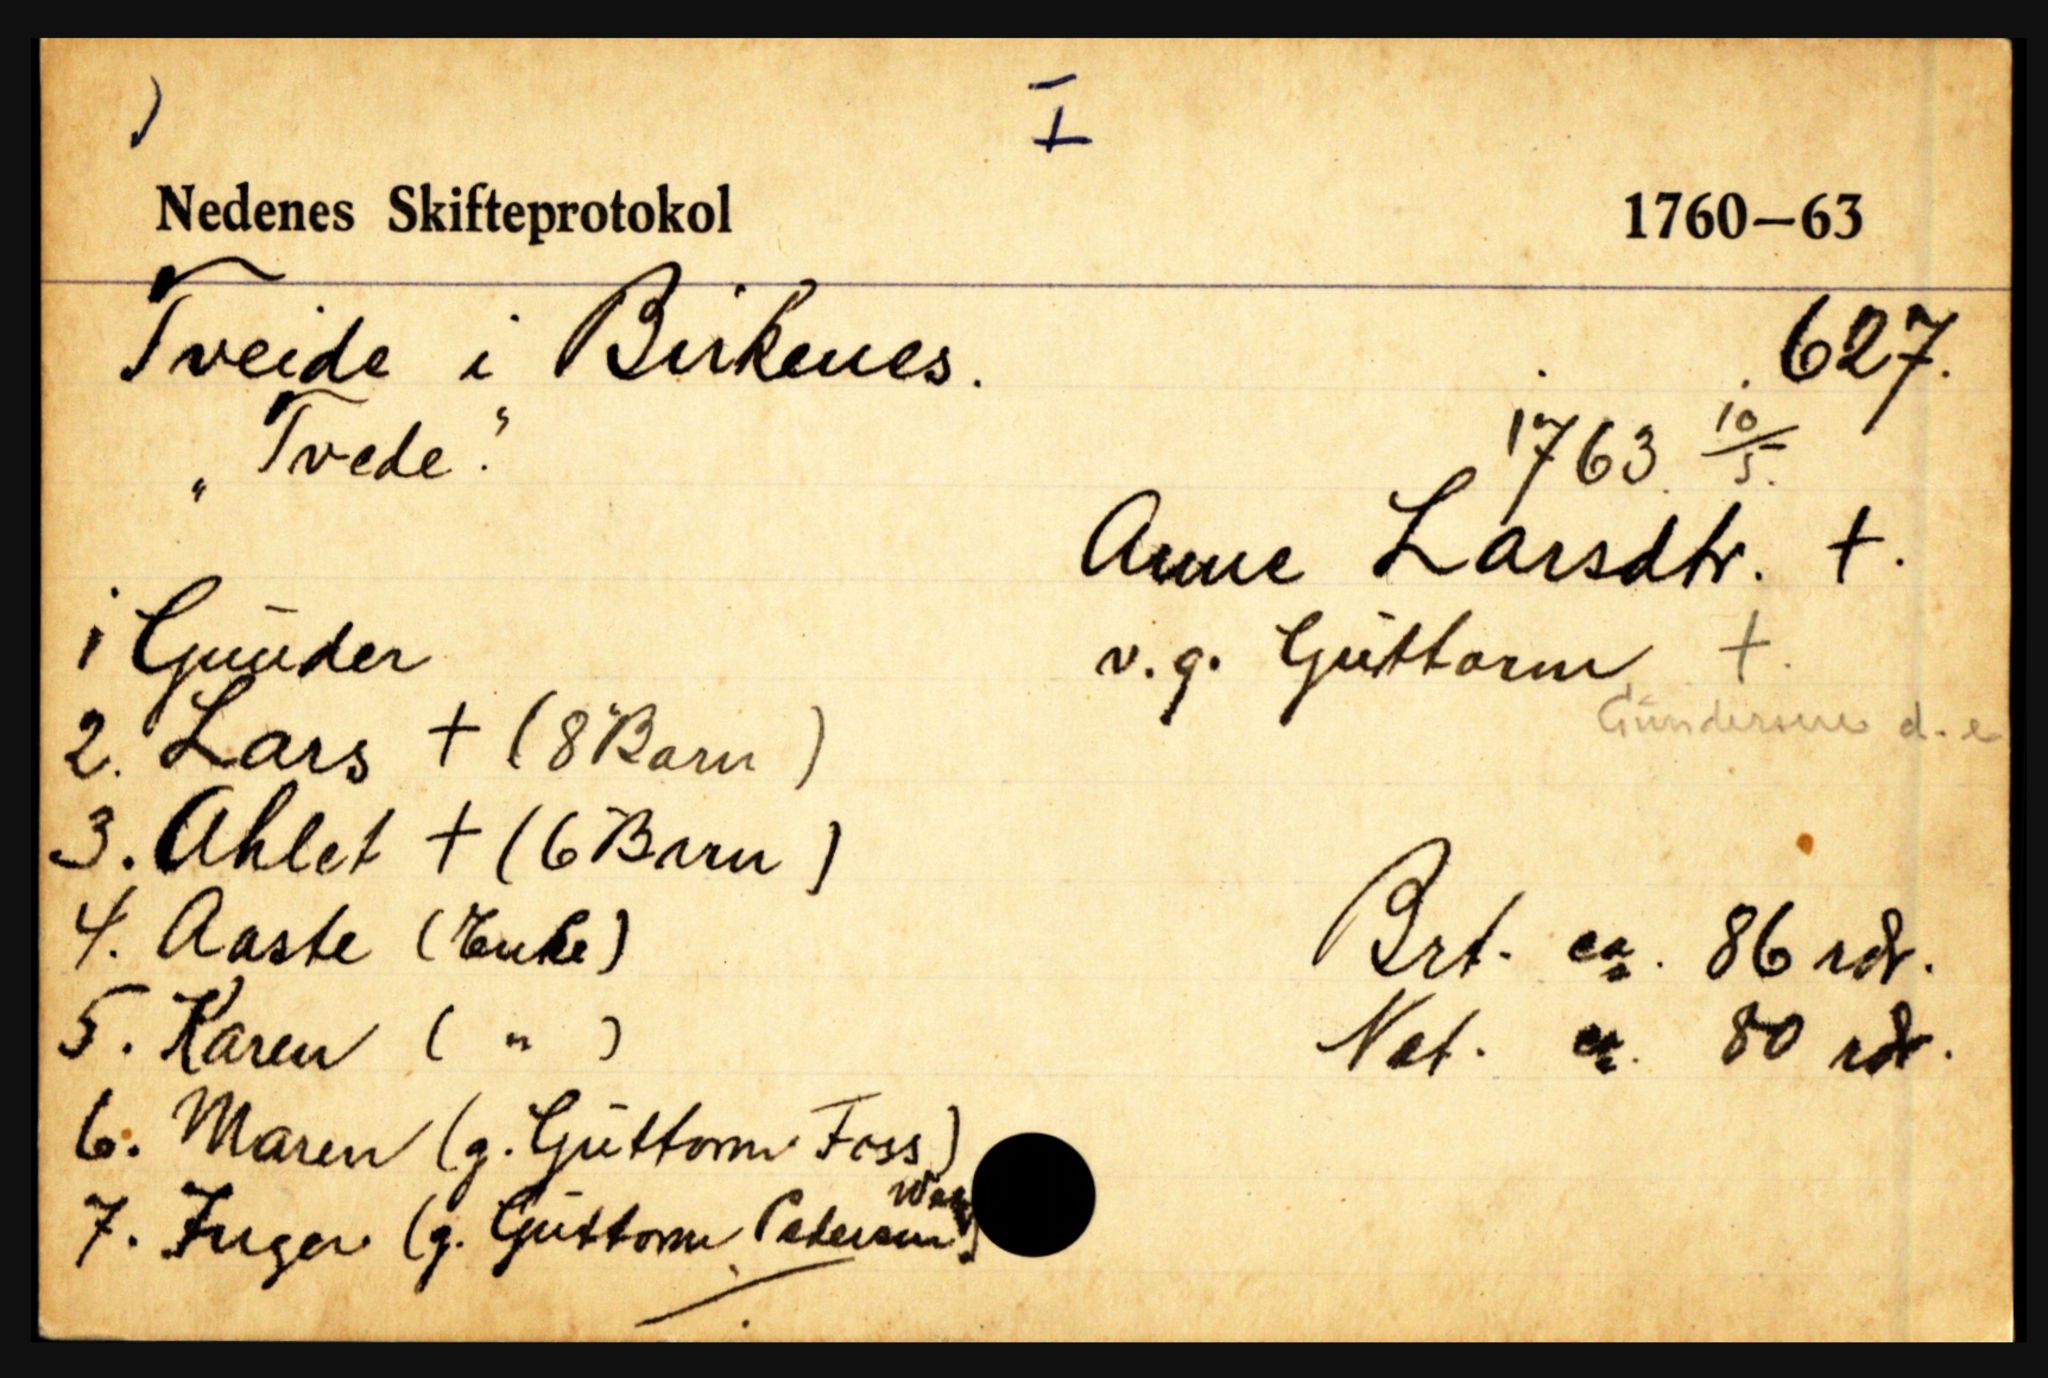 I
Nedenes Skifteprotokol 1760—63
Tveide i Birkenes. 627.
"Tvede."
1763 10/5.
Anne Larsdtr. +.
v. g. Guttorm +.
Gundersen d. e
1 Gunder
2. Lars + (8 Barn)
3. Ahlet + (6 Barn)
4. Aaste (Enke)
5. Karen ( " )
6. Maren (g. Guttorm Foss)
7. Inger (g. Guttorm Pedersen)
Brt. ca. 86 rdr.
Net. ca. 80 rdr.